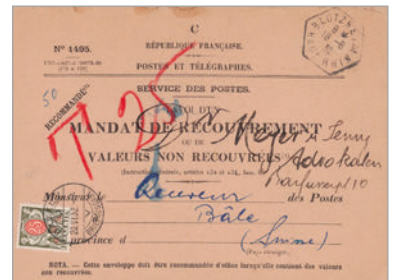 C
N° 1495.
RÉPUBLIQUE FRANÇAISE.
POSTES ET TÉLÉGRAPHES.
SERVICE DES POSTES.
50
RECOMMANDÉ.
T 25
D'UN
MANDAT DE RECOUVREMENT
OU DE
VALEURS NON RECOUVRÉES
Dr Meyer & Jenny
Advokaten
10
Monsieur le Receveur des Postes
Bâle
province d (Suisse)
NOTA. — Cette enveloppe doit être recommandée d'office lorsqu'elle contient des valeurs
non recouvrées.